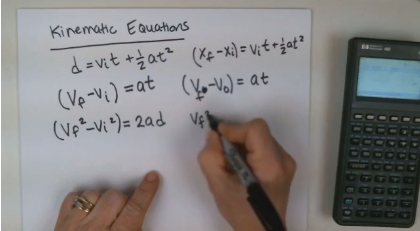 Kinematic Equations
d = vᵢt + ½at² (xf - xᵢ) = vᵢt + ½at²
(Vf - Vᵢ) = at (Vf - V₀) = at
(Vf² - Vᵢ²) = 2ad Vf²